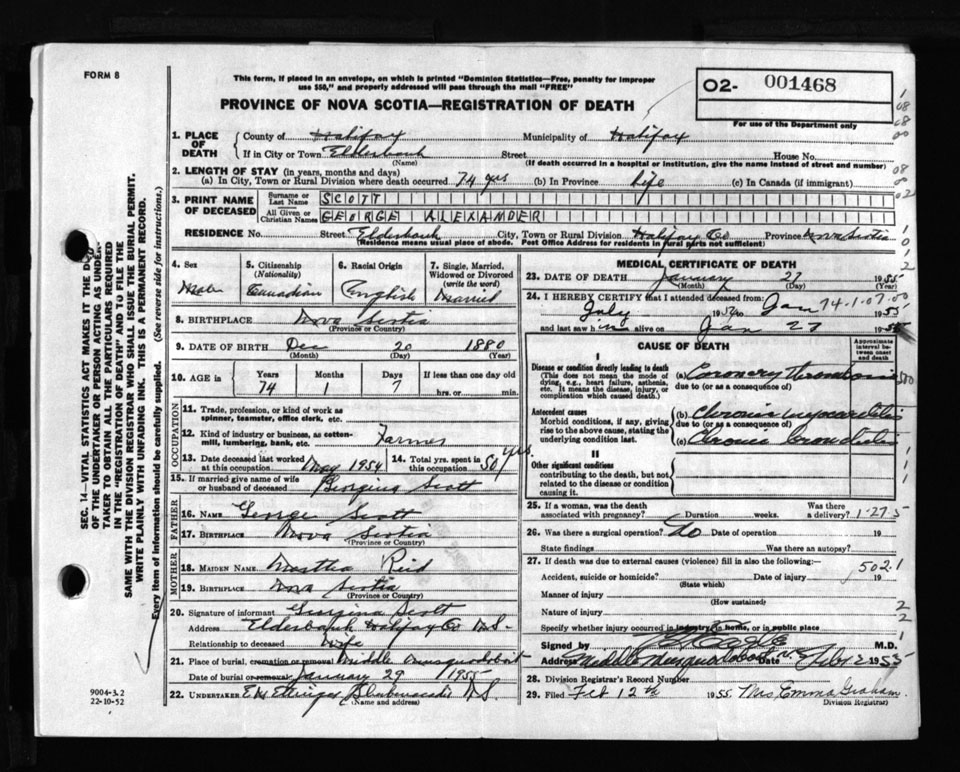 FORM 8
This form, if placed in an envelope, on which is printed "Dominion Statistics—Free, penalty for improper
use $50," and properly addressed will pass through the mail "FREE"
PROVINCE OF NOVA SCOTIA—REGISTRATION OF DEATH
O2- 001468
For use of the Department only
1. PLACE OF DEATH County of Halifax Municipality of Halifax
If in City or Town Elderbank Street House No.
(Name) (If death occurred in a hospital or institution, give the name instead of street and number)
2. LENGTH OF STAY (in years, months and days)
(a) In City, Town or Rural Division where death occurred 74 yrs (b) In Province Life (c) In Canada (if immigrant)
3. PRINT NAME OF DECEASED Surname or Last Name SCOTT
All Given or Christian Names GEORGE ALEXANDER
RESIDENCE No. Street Elderbank City, Town or Rural Division Halifax Co Province Nova Scotia
(Residence means usual place of abode. Post Office Address for residents in rural parts not sufficient)
4. Sex Male
5. Citizenship (Nationality) Canadian
6. Racial Origin English
7. Single, Married, Widowed or Divorced (write the word) Married
8. BIRTHPLACE Nova Scotia
(Province or Country)
9. DATE OF BIRTH Dec 20 1880
(Month) (Day) (Year)
10. AGE in Years Months Days If less than one day old
74 1 7 hrs. or min.
OCCUPATION
11. Trade, profession, or kind of work as
spinner, teamster, office clerk, etc.
12. Kind of industry or business, as cotton-
mill, lumbering, bank, etc. Farmer
13. Date deceased last worked at this occupation May 1954 14. Total yrs. spent in this occupation 50 yrs.
15. If married give name of wife or husband of deceased Georgina Scott
FATHER
16. NAME George Scott
17. BIRTHPLACE Nova Scotia
(Province or Country)
MOTHER
18. MAIDEN NAME Martha Reid
19. BIRTHPLACE Nova Scotia
(Province or Country)
20. Signature of informant Georgina Scott
Address Elderbank Halifax Co N.S.
Relationship to deceased Wife
21. Place of burial, cremation or removal Middle Musquodoboit
Date of burial or removal January 29 1955
22. UNDERTAKER E W Ettinger Shubenacadie N.S.
(Name and address)
9004-3.2
22-10-52
MEDICAL CERTIFICATE OF DEATH
23. DATE OF DEATH January 27 1955
(Month) (Day) (Year)
24. I HEREBY CERTIFY that I attended deceased from: Jan 74-1-07-00
July 1955
and last saw him alive on Jan 27 1955
CAUSE OF DEATH
Approximate interval between onset and death
I
Disease or condition directly leading to death
(This does not mean the mode of
dying, e.g., heart failure, asthenia,
etc. It means the disease, injury, or
complication which caused death.)
(a) Coronary Thrombosis
due to (or as a consequence of)
Antecedent causes
Morbid conditions, if any, giving
rise to the above cause, stating the
underlying condition last.
(b) Chronic myocarditis
due to (or as a consequence of)
(c) Chronic bronchitis
II
Other significant conditions
contributing to the death, but not
related to the disease or condition
causing it.
25. If a woman, was the death associated with pregnancy? Duration weeks. Was there a delivery? 1-27-5
26. Was there a surgical operation? No Date of operation 19
State findings Was there an autopsy?
27. If death was due to external causes (violence) fill in also the following:— 502.1
Accident, suicide or homicide? Date of injury 19
(State which)
Manner of injury
(How sustained)
Nature of injury
Specify whether injury occurred in industry, in home, or in public place
Signed by M.D.
Address Middle Musquodoboit N.S. Date Feb 2 1955
28. Division Registrar's Record Number
29. Filed Feb 12th 1955 Mrs Emma Graham.
Division Registrar
SEC. 14—VITAL STATISTICS ACT MAKES IT THE DUTY
OF THE UNDERTAKER OR PERSON ACTING AS UNDER-
TAKER TO OBTAIN ALL THE PARTICULARS REQUIRED
IN THE "REGISTRATION OF DEATH" AND TO FILE THE
SAME WITH THE DIVISION REGISTRAR WHO SHALL ISSUE THE BURIAL PERMIT.
WRITE PLAINLY WITH UNFADING INK. THIS IS A PERMANENT RECORD.
Every item of information should be carefully supplied. (See reverse side for instructions.)